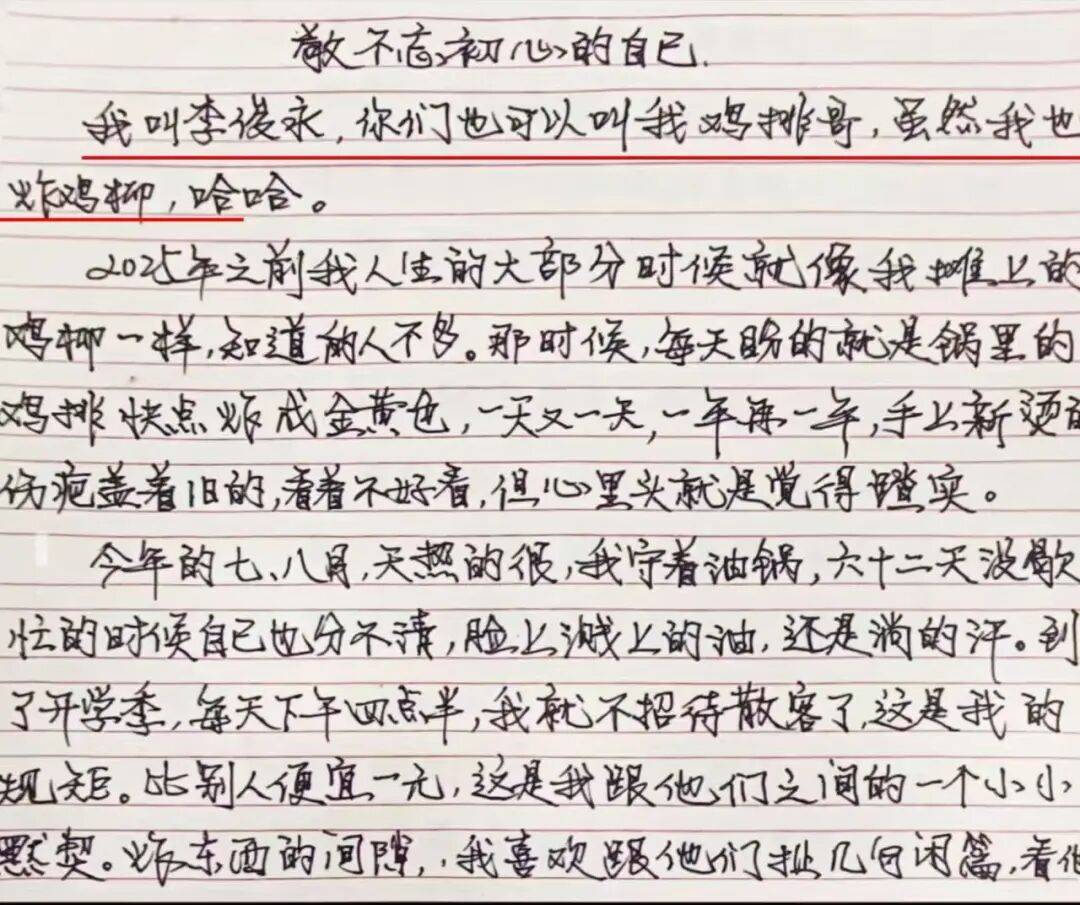 敬不忘初心的自己.
我叫李俊永,你们也可以叫我鸡排哥,虽然我也
炸鸡柳,哈哈。
2025年之前我人生的大部分时候就像我摊上的
鸡柳一样,知道的人不多。那时候,每天盼的就是锅里的
鸡排快点炸成金黄色,一天又一天,一年再一年,手上新烫的
伤疤盖着旧的,看着不好看,但心里头就是觉得踏实。
今年的七、八月,天热的很,我守着油锅,六十二天没歇
忙的时候自己也分不清,脸上溅上的油,还是淌的汗。到
了开学季,每天下午四点半,我就不招待散客了,这是我的
规矩。比别人便宜一元,这是我跟他们之间的一个小小
默契。炸东西的间隙,我喜欢跟他们扯几句闲篇,看他